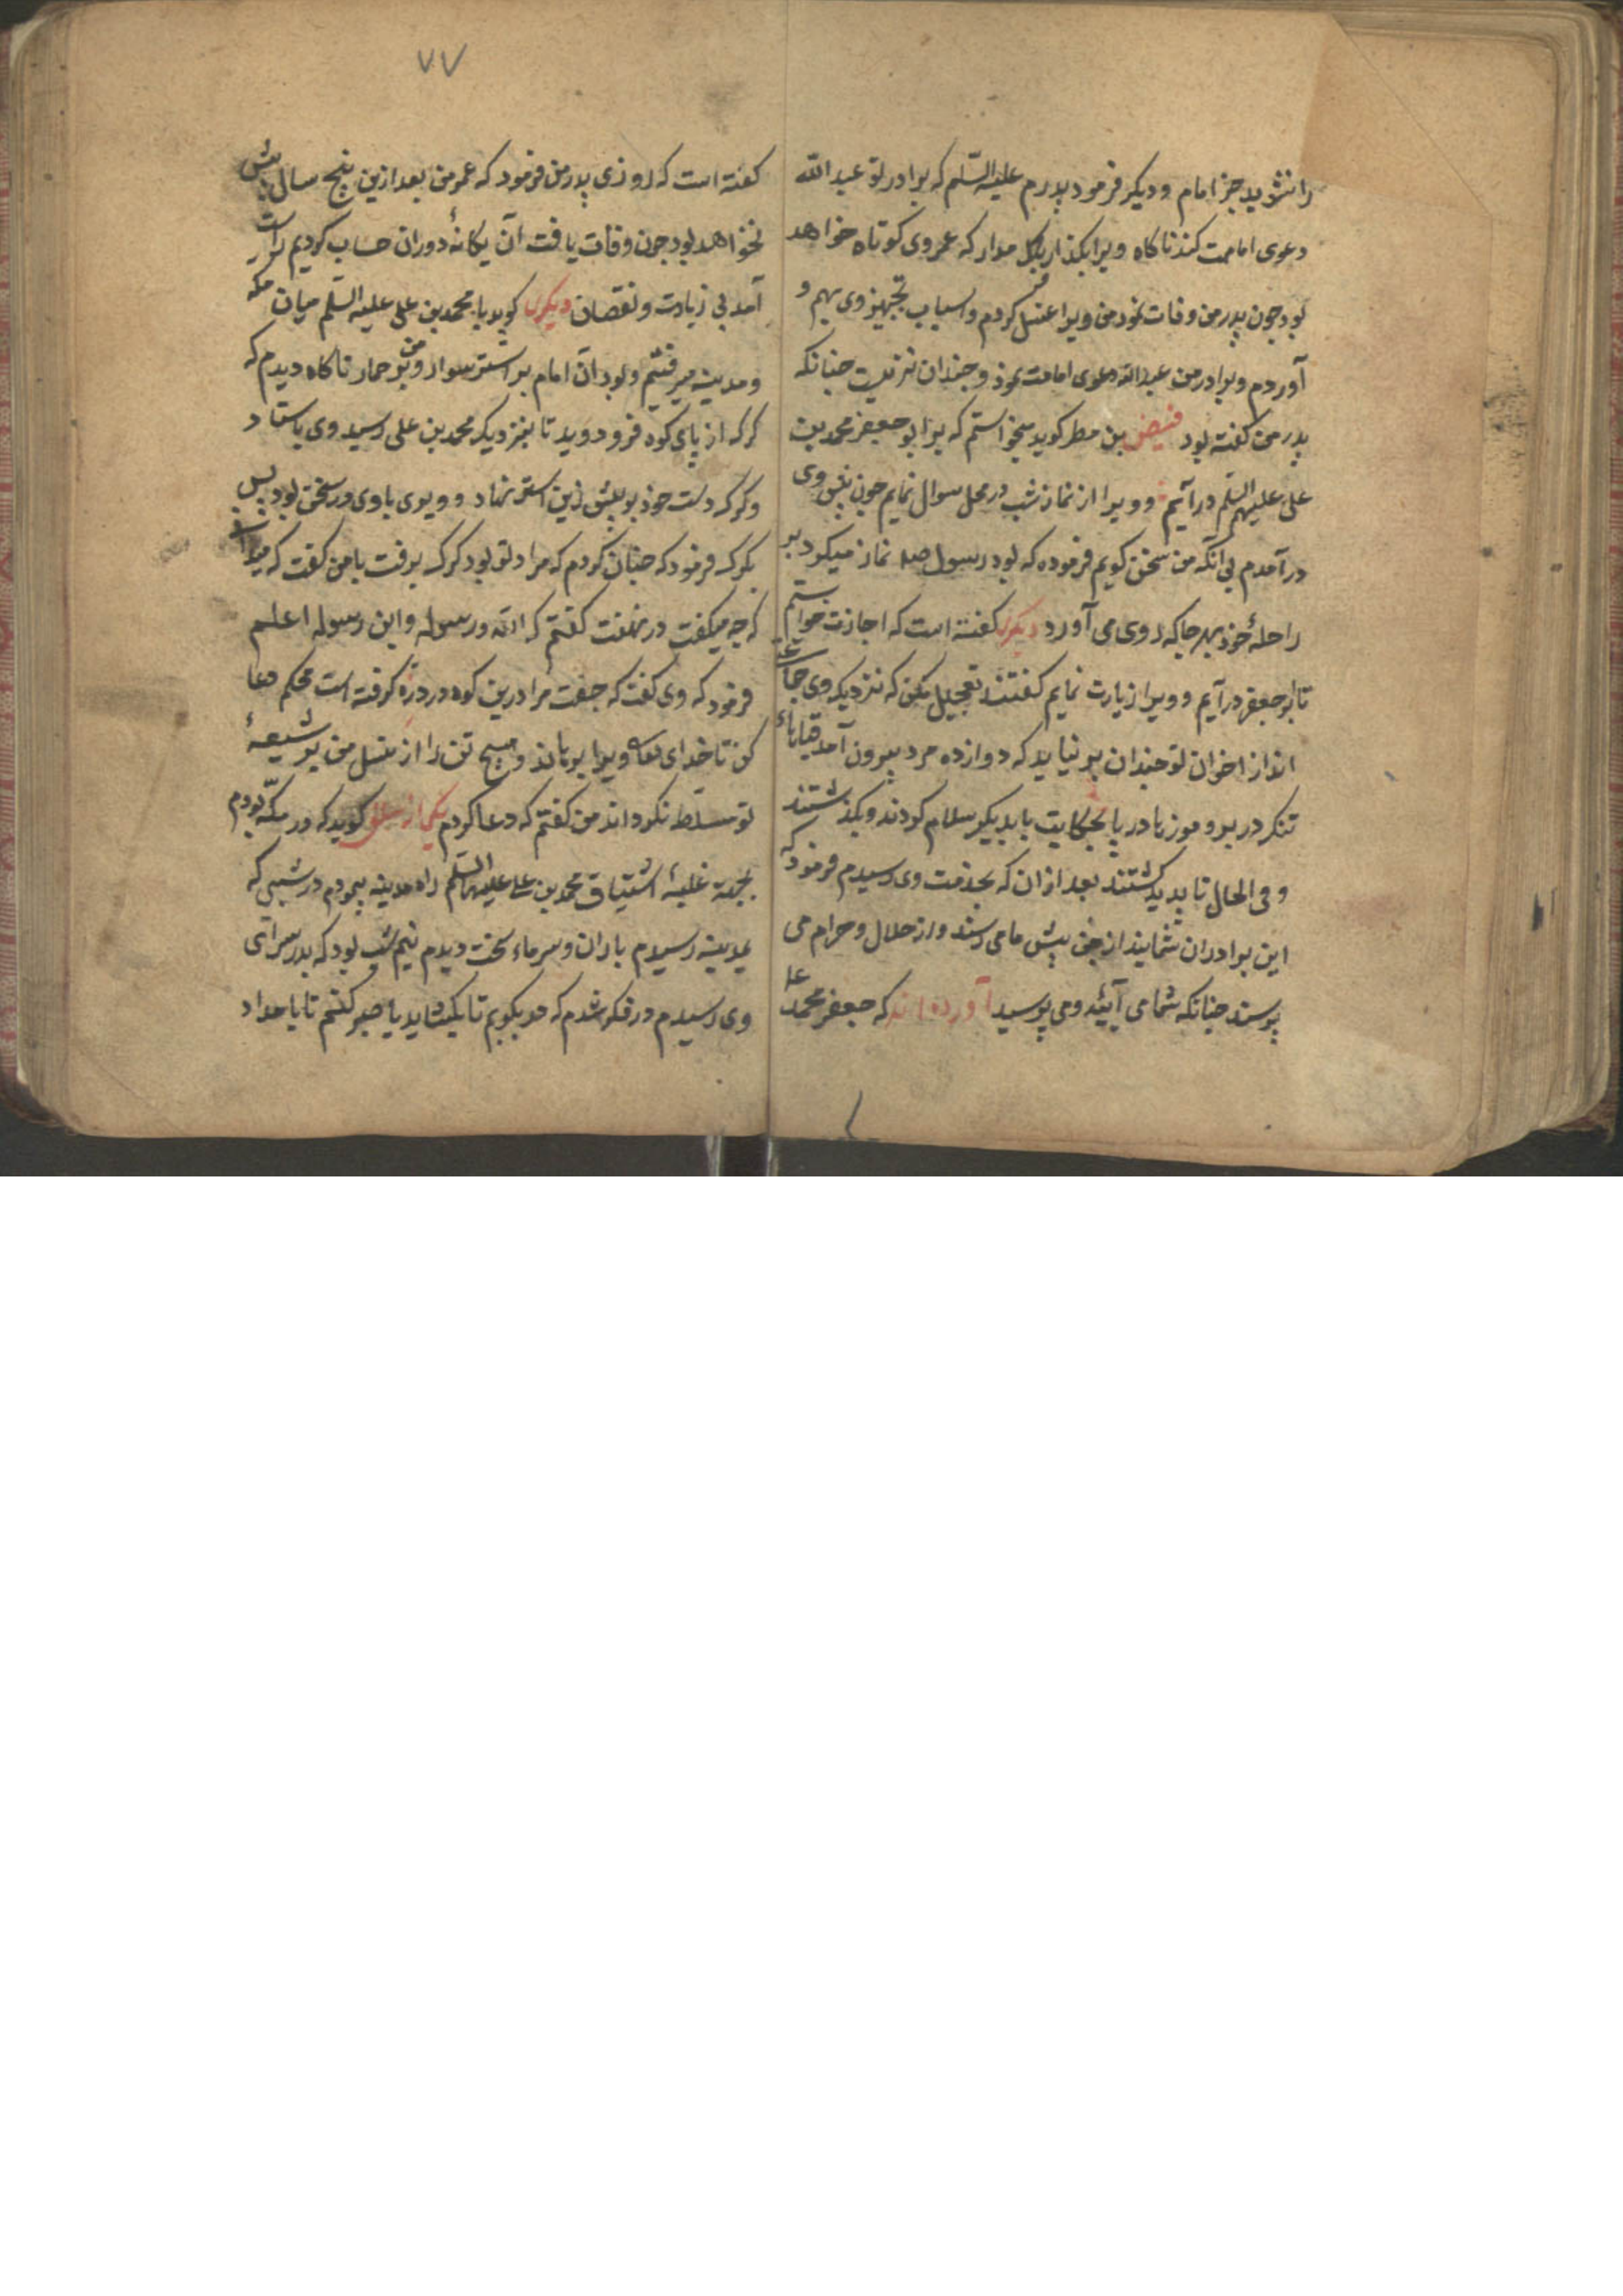 را نشوید جز امام و دیکر فرمود پدرم علیه السّلم که برادر تو عبد اللّه
دعوی امامت کند ناکاه ویرا بکذار بکل مدار که عمر وی کوتاه خواهد
بود جون پدر من وفات نمود من ویرا غسل کردم و اسباب تجهیز وی بهم و
آوردم و برادر من عبد اللّه دعوی امامت نمود و جندان نزیست جنانکه
پدر من کفته بود فیض بن مطر کوید میخواستم که بر ابو جعفر محمد بن
علی علیهم السلم در آیم و ویرا از نماز شب در محل سوال نمایم جون پیش وی
در آمدم بی آنکه من سخن کویم فرموده که بود رسول صلعم نماز میکرد بر
راحلهٔ خود بهر جا که روی می آورد دیکری کفته است که اجازت خواستم
تا بر ابو جعفر در آیم و ویرا زیارت نمایم کفتند تعجیل مکن که نزدیک وی جماعتی
اند از اخوان تو جندان بر نیاید که دوازده مرد بیرون آمد قباهاء
تنک در بر و موزها در پا بحکایت با یدیکر سلام کردند و بکذشتند
و فی الحال نا پدید کشتند بعد از ان که بخدمت وی رسیدم فرمود که
این برادران شمایند از جن پیش ما می رسند و از حلال و حرام می
پرسند جنانکه شما می آیید و می پرسید آورده اند که جعفر محمد علیه
۷۷
کفته است که روزی پدر من فرمود که عمر من بعد ازین پنج سال پیش
نخواهد بود جون وفات یافت آن یکانهٔ دوران حساب کردیم راست
آمد بی زیادت و نقصان دیکری کوید با محمد بن علی علیه السّلم میان مکه
و مدینه میرفتیم و بود آن امام بر استر سوار و من بر حمار ناکاه دیدم که
کرک از پای کوه فرو دوید تا بنزدیک محمد بن علی رسید وی باستاد
و کرک دست خود بر پیش زین استر نهاد و ویوی با وی در سخن بود پس
بکرک فرمود که جنان کردم که مراد تو بود کرک برفت با من کفت که میدانی
که جه میکفت در نهفت کفتم که اللّه و رسوله و ابن رسوله اعلم
فرمود که وی کفت که جفت مرا درین کوه درد زه کرفته است محکم دعا
کن تا خدای تعالی ویرا برهاند و هیج تن را از نسل من بر شیعهٔ
تو مسلّط نکرداند من کفتم که دعا کردم یکی از عراق کوید که در مکّه بودم
بجهت غلبهٔ اشتیاق محمد بن علی علیهما السّلم راه مدینه پیمودم در شبی که
بمدینه رسیدم باران و سرماء سخت دیدم نیم شب بود که بدر سرای
وی رسیدم در فکر شدم که در بکوبم تا بکشاید یا صبر کنم تا بامداد